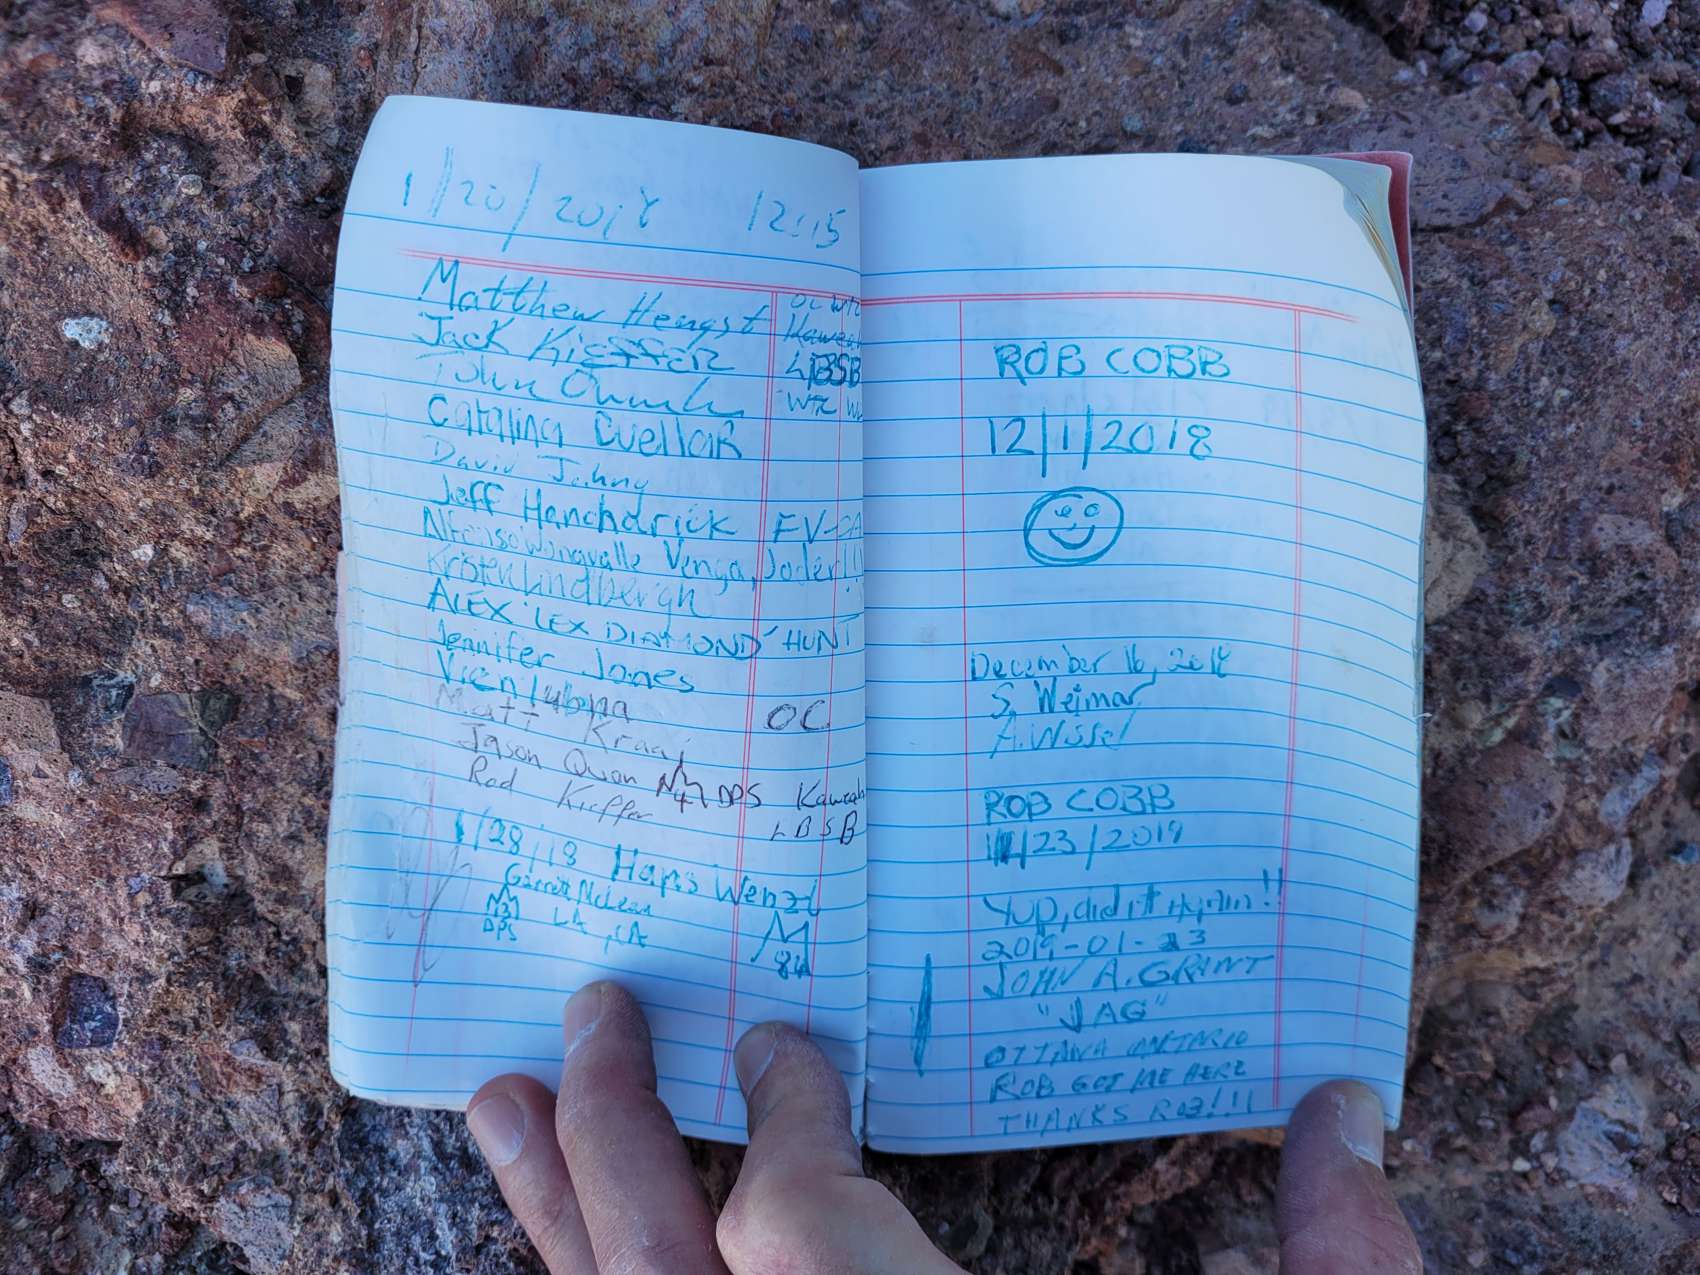 1/20/2018 12:15
Matthew Hengst OC WTC
Jack Kieffer LBSB
John WTC
Catalina Cuellar
David Jahng
Jeff Hanchdrick
Venga, Joder!!!
Kristen Lindbergh
ALEX "LEX DIAMOND" HUNT
Jennifer Jones
Matt Kraai OC
Jason Quan DPS Kaweah
Rod Kieffer LBSB
1/28/18 Hans Wenzel
Garrett McLean
DPS LA, CA
ROB COBB
12/1/2018
December 16, 2018
S. Weimar
ROB COBB
/23/2019
Yup, did it again!!
2019-01-23
JOHN A. GRANT
"JAG"
OTTAWA ONTARIO
ROB GOT ME HERE
THANKS ROB!!!